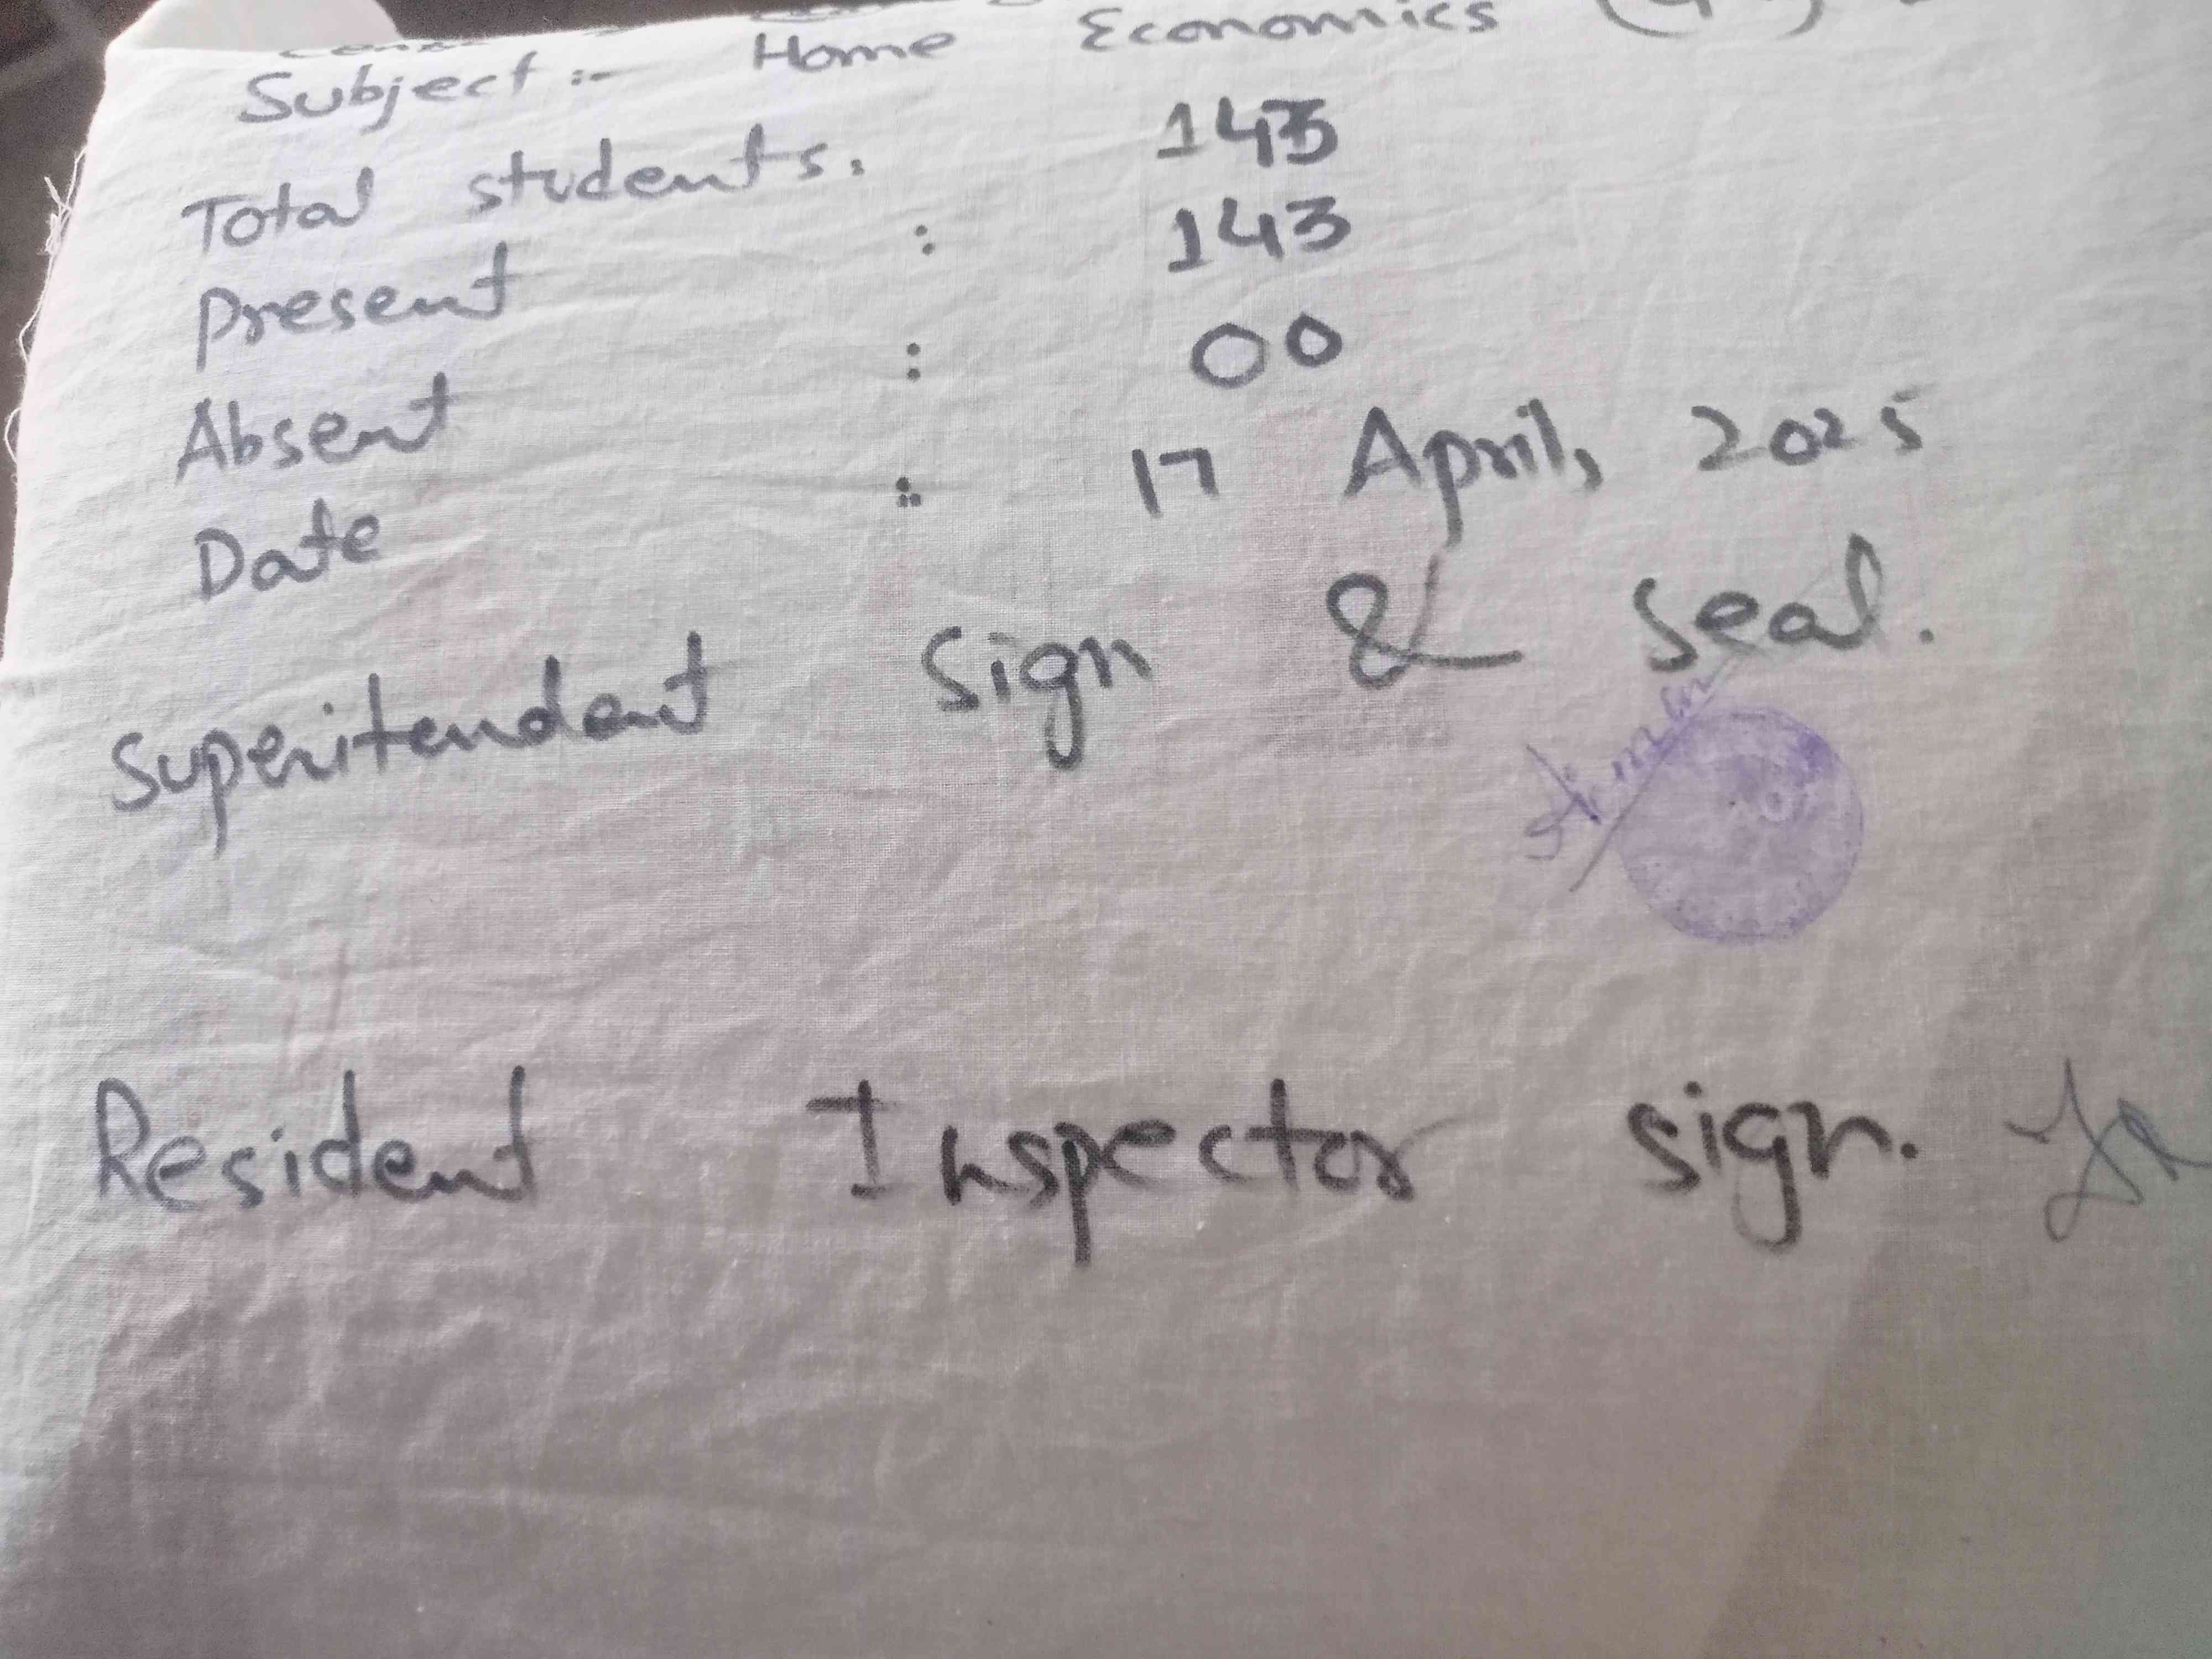 Subject :- Home Economics
Total students. 143
Present : 143
Absent : 00
Date : 17 April, 2025
Superitendent Sign & Seal.
Resident Inspector Sign.